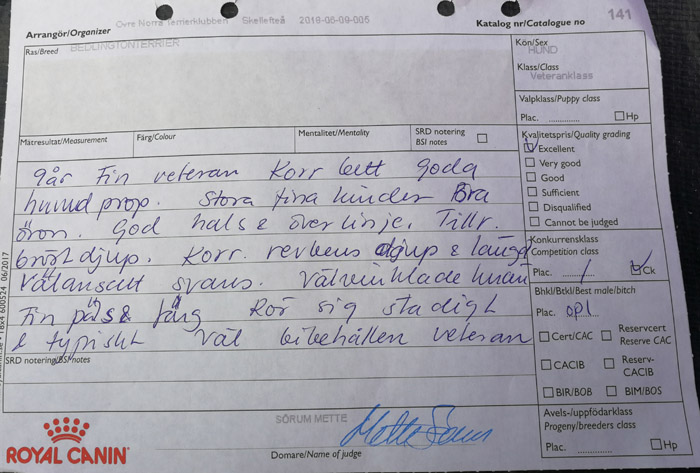 Arrangör/Organizer
Övre Norra Terrierklubben Skellefteå 2018-06-09-005
Katalog nr/Catalogue no 141
Ras/Breed BEDLINGTONTERRIER
Kön/Sex
HUND
Klass/Class
Veteranklass
Valpklass/Puppy class
Plac. .............. Hp
Mätresultat/Measurement Färg/Colour Mentalitet/Mentality SRD notering
BSI notes
Kvalitetspris/Quality grading
Excellent
Very good
Good
Sufficient
Disqualified
Cannot be judged
9år Fin veteran Korr bett Goda
huvud prop. Stora fina kinder Bra
öron. God hals & överlinje. Tillr.
bröstdjup. Korr. revbens djup & längd
Välansatt svans. Välvinklade knän
Fin päls & färg Rör sig stadigt
& typiskt Väl bibehållen veteran
Konkurrensklass
Competition class
Plac. 1 Ck
Bhkl/Btkl/Best male/bitch
Plac. opl.
Cert/CAC
Reservcert
Reserve CAC
CACIB
Reserv-
CACIB
BIR/BOB
BIM/BOS
Avels-/uppfödarklass
Progeny/breeders class
Plac. .............. Hp
SRD notering/BSI notes
TBX4 600524 06/2017
SÖRUM METTE
Domare/Name of judge
ROYAL CANIN